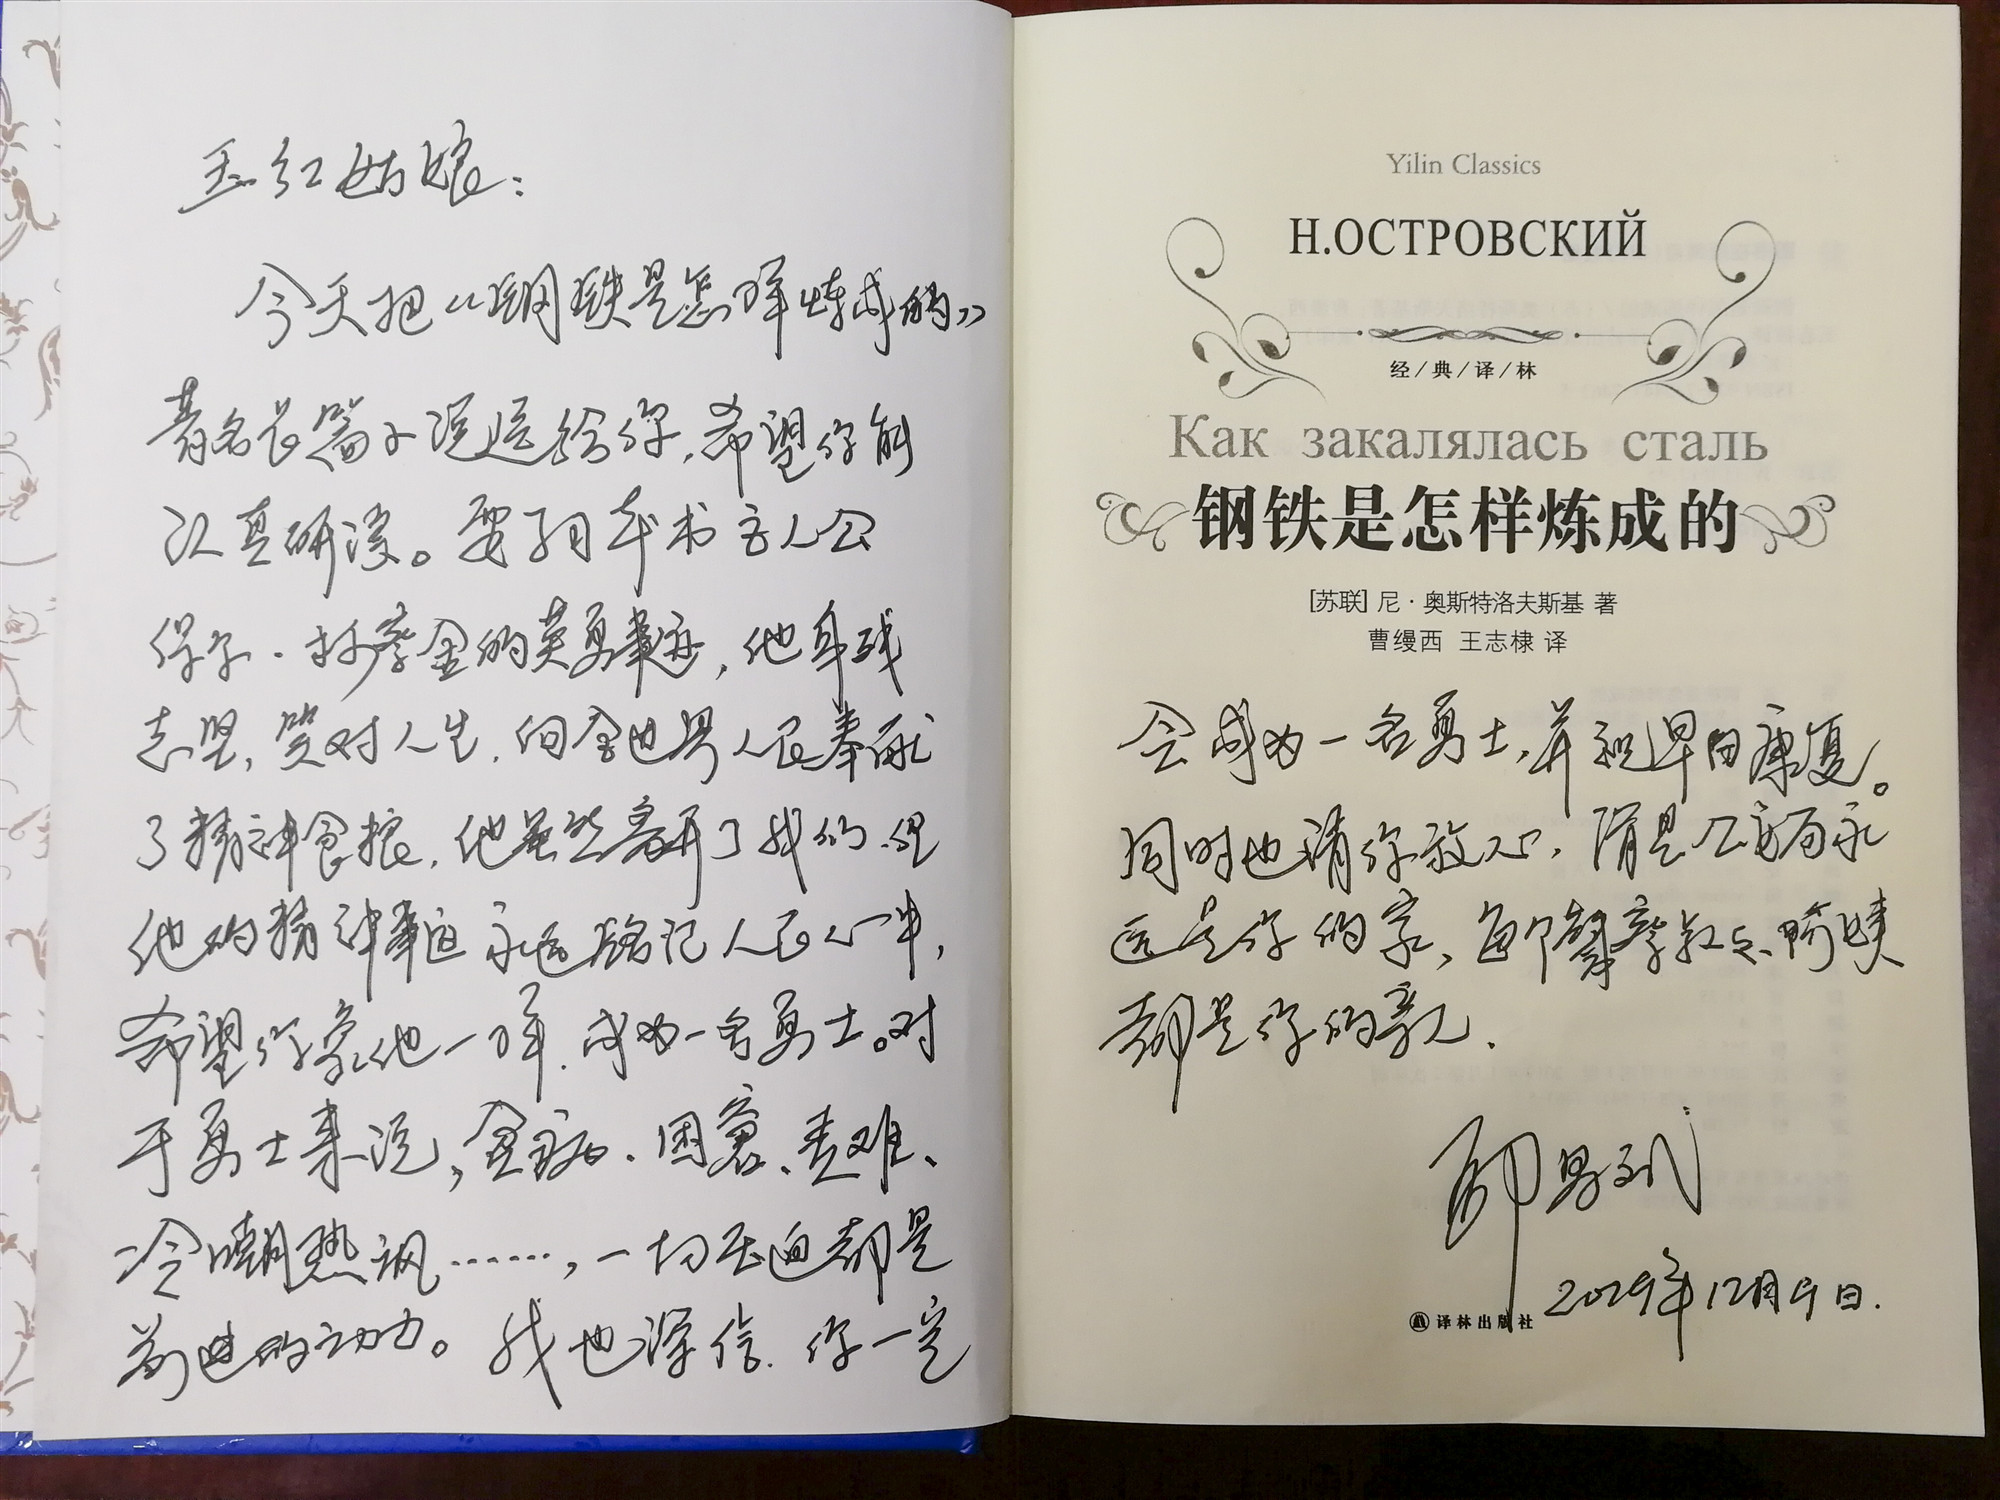 玉红姑娘：
今天把《钢铁是怎样炼成的》
著名长篇小说送给你，希望你能
认真研读。要学习本书主人公
保尔·柯察金的英勇事迹，他身残
志坚，笑对人生，向全世界人民奉献
了精神食粮，他虽然离开了我们，但
他的精神事迹永远铭记人民心中，
希望你象他一样，成为一名勇士。对
于勇士来说，疾病、困窘、责难、
冷嘲热讽……，一切压迫都是
前进的动力。我也深信，你一定
Yilin Classics
Н.ОСТРОВСКИЙ
经/典/译/林
Как закалялась сталь
钢铁是怎样炼成的
[苏联] 尼·奥斯特洛夫斯基 著
曹缦西 王志棣 译
会成为一名勇士，并祝早日康复。
同时也请你放心，隋县公安局永
远是你的家，每个警察叔叔、阿姨
都是你的亲人.
12月9日.
译林出版社